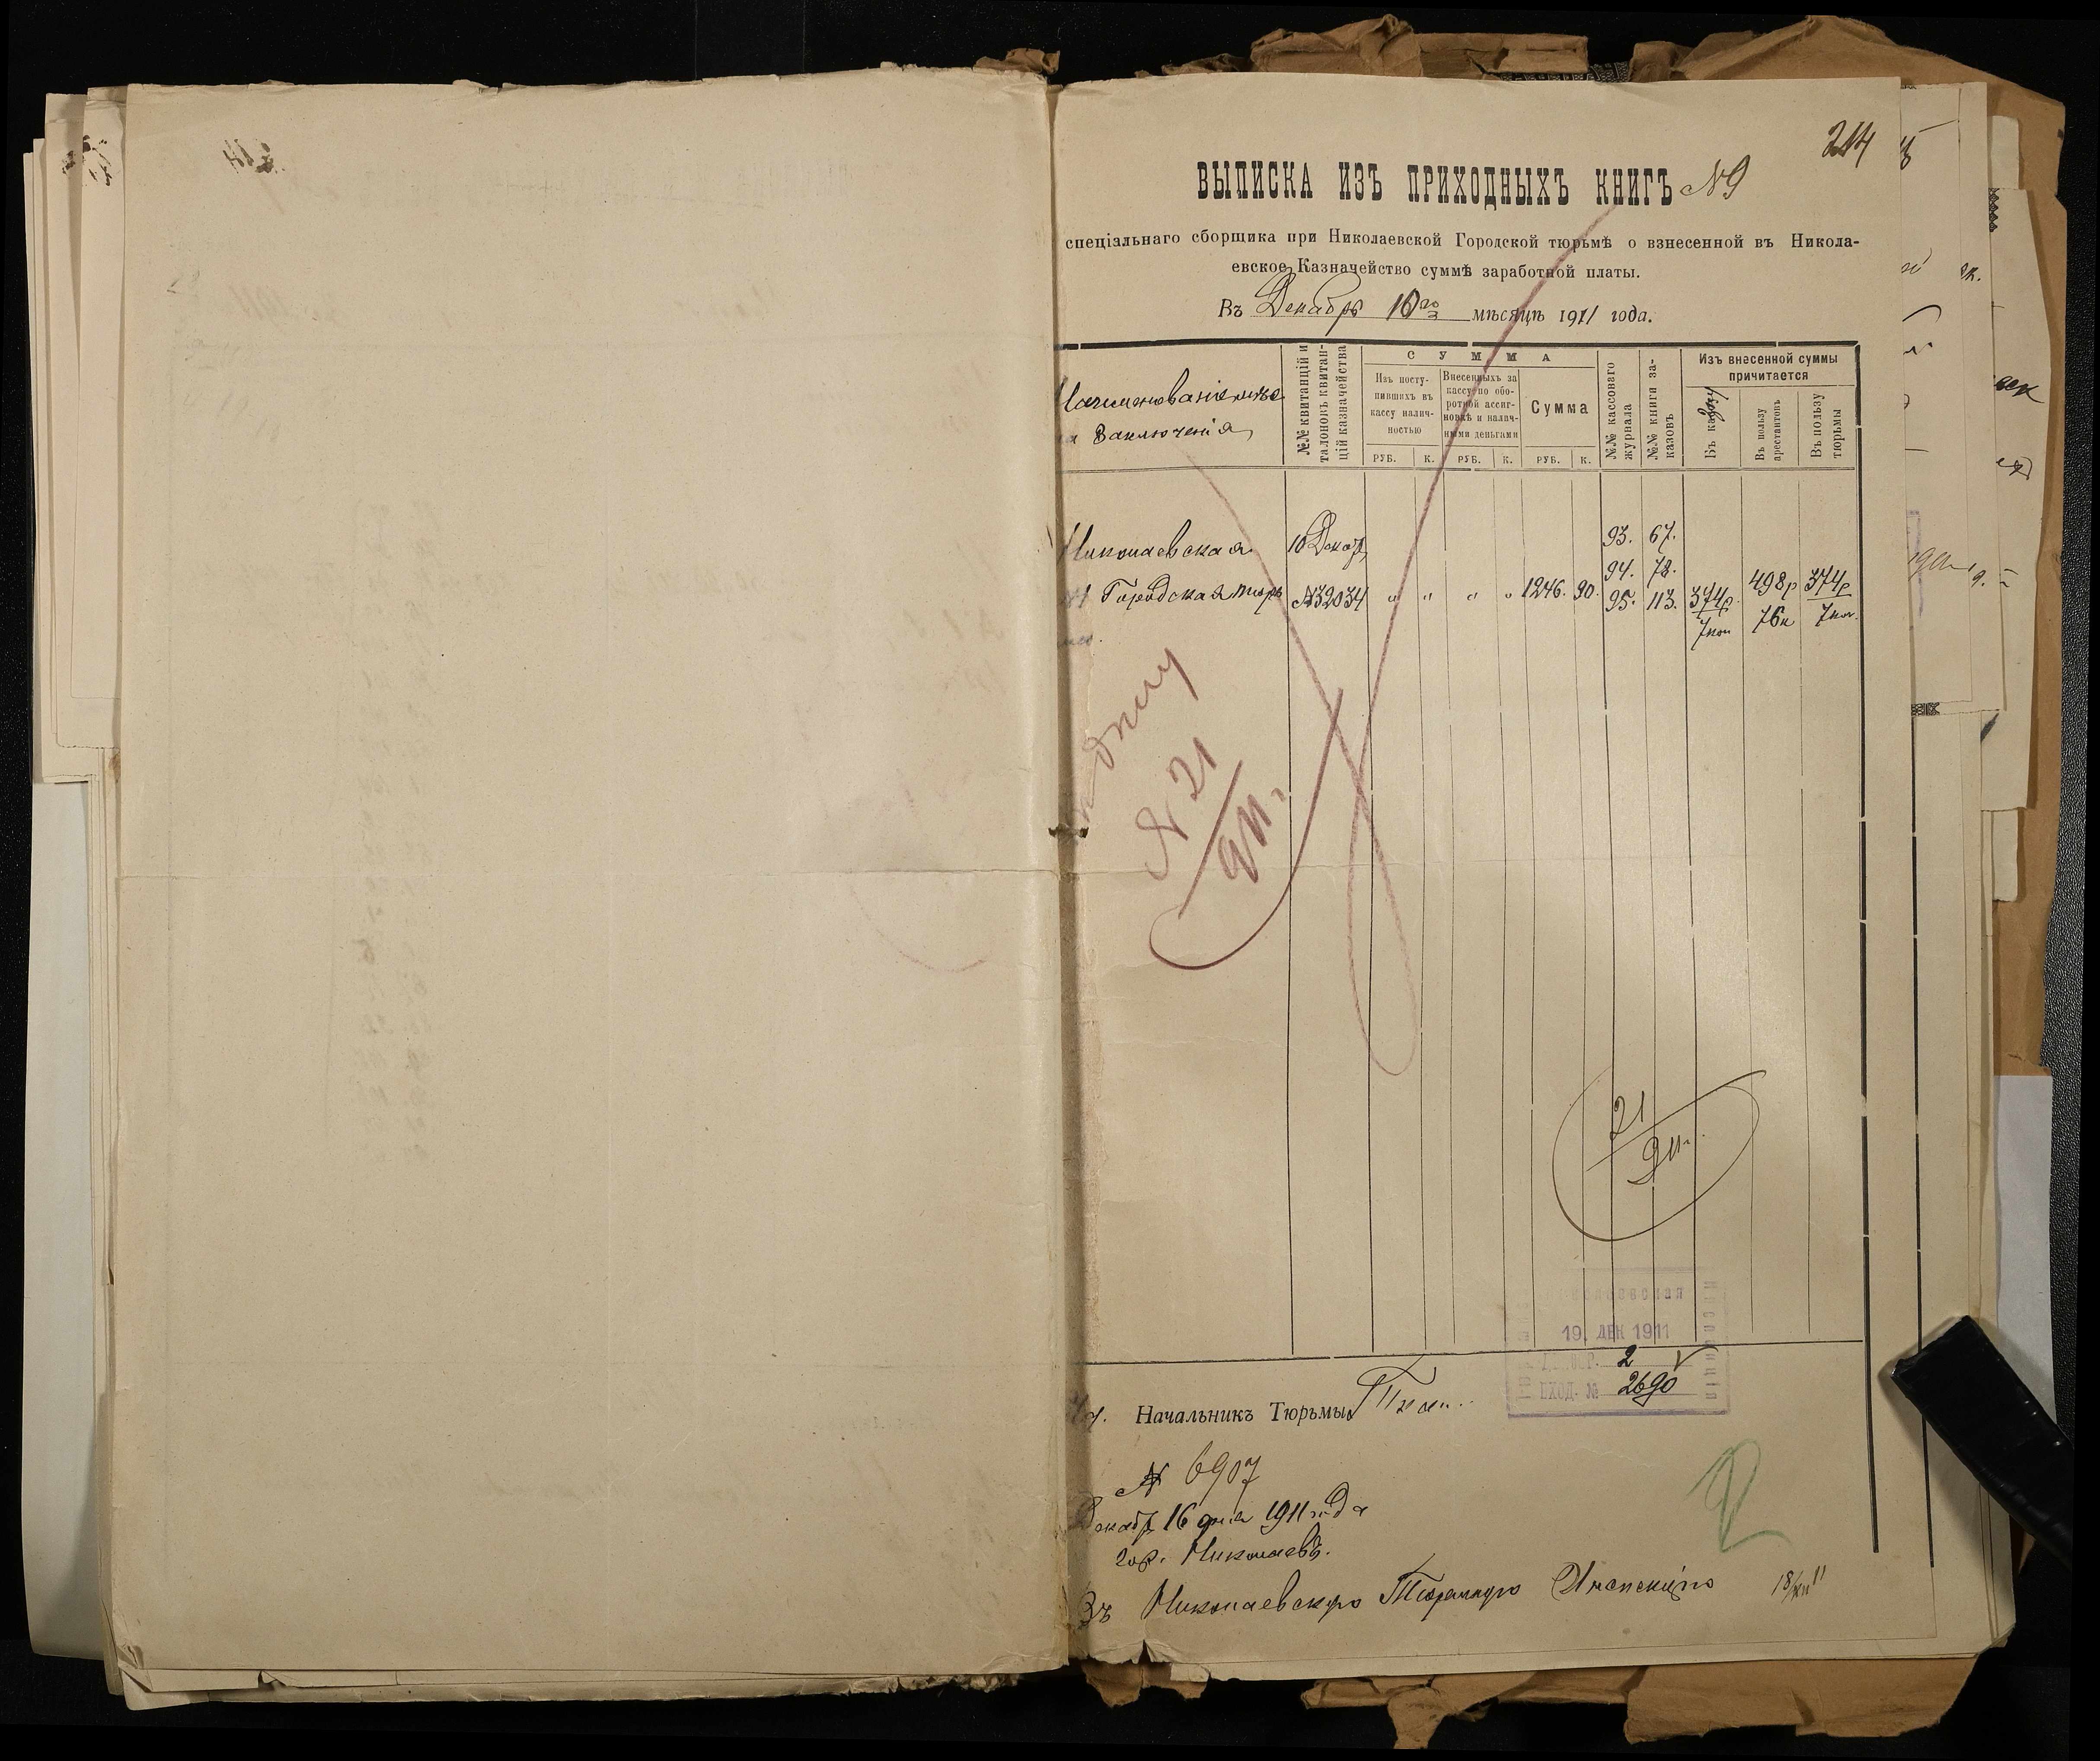 214
ВЫПИСКА ИЗЪ ПРИХОДНЫХЪ КНИГЪ №9
спеціальнаго сборщика при Николаевской Городской тюрьмѣ о взнесенной въ Никола-
евское Казначейство суммѣ заработной платы.
Въ Декабрѣ 10го мѣсяцѣ 1911 года.
Наименованіе мѣс
та Заключенія
№№ квитанцій и
талоновъ квитан-
цій казначейства
СУММА
Изъ посту-
пившихъ въ
кассу налич-
ностью
Внесенныхъ за
кассу по обо-
ротной ассиг-
новкѣ и налич-
ными деньгами
Сумма
РУБ. К. РУБ. К. РУБ. К.
№№ кассоваго
журнала
№№ книги за-
казовъ
Изъ внесенной суммы
причитается
Въ казну
Въ пользу
арестантовъ
Въ пользу
тюрьмы
Николаевская 10 Декаб. 93. 67.
Городская тюрь №32034 " " " " 1246. 90. 94. 78. 374р. 498р 374р
ма. 95. 113. 7коп 76к 7коп.
№ 21
911.
21
911.
19. ДЕК 1911
2
ВХОД. № 2690
Начальникъ Тюрьмы
№ 6907
Декаб. 16 дня 1911 года
гор. Николаевъ.
Въ Николаевскую Тюремную Инспекцію 18/XII 11